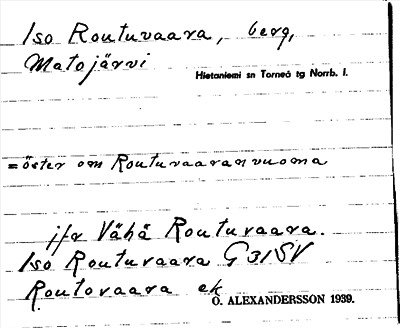 Iso Routuvaara, berg,
Matojärvi
Hietaniemi sn Torneå tg Norrb. l.
= öster om Routuvaaranvuoma
jfr Vähä Routuvaara.
Iso Routuvaara G 31 SV
Routovaara ek
O. ALEXANDERSSON 1939.